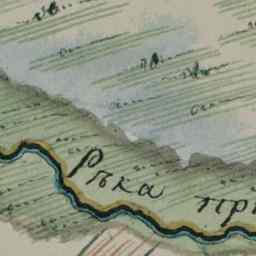 Рѣка при